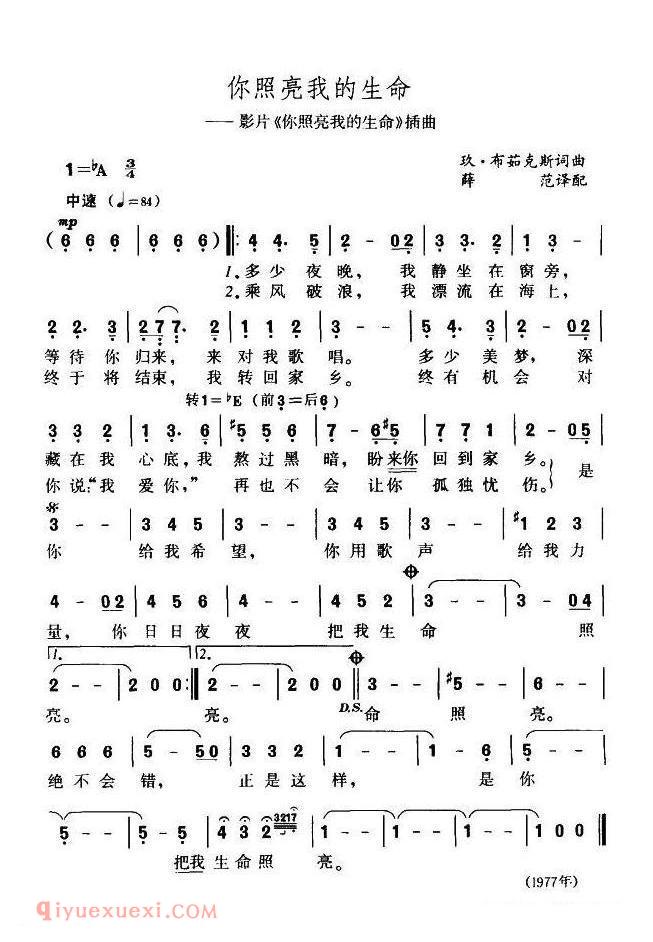 你照亮我的生命
—— 影片《你照亮我的生命》插曲
1=♭A 3/4
玖·布茹克斯词曲
中速 (♩=84)
薛 范译配
mp
(6 6 6 | 6 6 6) ‖: 4 4. 5 | 2 - 02 | 3 3. 2 | 1 3 - |
1.多少夜晚, 我静坐在窗旁,
2.乘风破浪, 我漂流在海上,
2 2. 3 | 2 7 7. 2 | 1 1 2 | 3 - - | 5 4. 3 | 2 - 02 |
等待你归来, 来对我歌唱。 多少美梦, 深
终于将结束, 我转回家乡。 终有机会对
转1=♭E (前3=后6)
3 3 2 | 1 3. 6 | #5 5 6 | 7 - 6#5 | 7 7 1 | 2 - 05 |
藏在我心底,我熬过黑暗,盼来你回到家乡。
你说:“我爱你,”再也不会让你孤独忧伤。 是
3 - - | 3 4 5 | 3 - - | 3 4 5 | 3 - - | #1 2 3 |
你 给我希望, 你用歌声 给我力
4 - 02 | 4 5 6 | 6 - - | 4 5 2 | 3 - - | 3 - 04 |
量, 你日日夜夜 把我生命 照
1. 2.
2 - - | 2 0 0 :‖ 2 - - | 2 0 0 ‖ 3 - - | #5 - - | 6 - - |
亮。 亮。 D.S. 命 照 亮。
6 6 6 | 5 - 50 | 3 3 2 | 1 - - | 1 - 6 | 5 - - |
绝不会错, 正是这样, 是你
5 - - | 5 - 5 | 4 3 2 3217 | 1 - - | 1 - - | 1 - - | 1 0 0 ‖
把我生命照 亮。
(1977年)
qiyuexuexi.com(奇乐网)